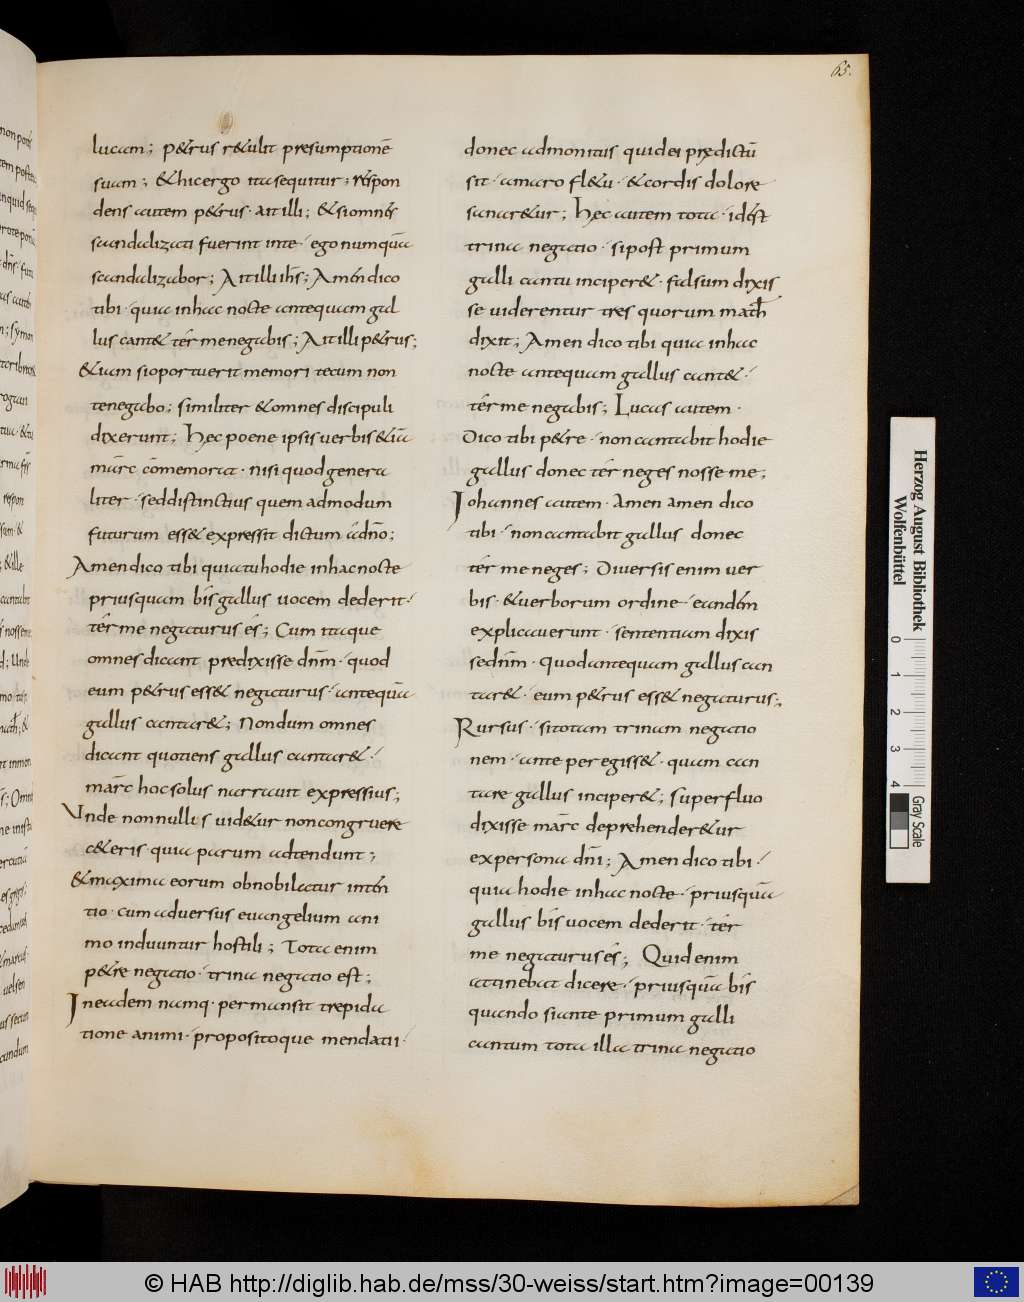 65.
lucam; petrus retulit presumptionē
suam; & hic ergo ita sequitur; respon
dens autem p&rus· ait illi; & si omnes
scandalizati fuerint in te· ego numquā
scandalizabor; Ait illi ihs̄; Amen dico
tibi· quia in hac nocte antequam gal
lus cant& ter me negabis; Ait illi p&rus;
&iam si oportuerit me mori tecum non
te negabo; similiter & omnes discipuli
dixerunt; Hec poene ipsis uerbis &iā
marc̄ cōmemorat· nisi quod genera
liter· sed distinctius quem admodum
futurum ess& expressit dictum a dn̄o;
Amen dico tibi quia tu hodie in hac nocte
priusquam bis gallus uocem dederit·
ter me negaturus es; Cum itaque
omnes dicant predixisse dnm̄· quod
eum p&rus ess& negaturus· antequā
gallus cantar&; Non dum omnes
dicant quotiens gallus cantar&·
marc̄ hoc solus narrauit expressius;
Vnde non nullis uid&ur non congruere
c&eris quia parum adtendunt;
& maxima eorum obnobilatur inten
tio· cum aduersus euangelium ani
mo induuntur hostili; Tota enim
p&re negatio· trina negatio est;
In eadem namq· permansit trepida
tione animi· propositoque mendatii·
donec admonitus quid ei prędictū
sit· amaro fl&u· & cordis dolore
sanar&ur; Hęc autem tota· idest
trina negatio· si post primum
galli cantu inciper&· falsum dixis
se uiderentur tres quorum math̄
dixit; Amen dico tibi quia in hac
nocte antequam gallus cant&·
ter me negabis; Lucas autem·
Dico tibi p&re· non cantabit hodie
gallus donec ter neges nosse me;
Iohannes autem· Amen amen dico
tibi· non cantabit gallus donec
ter me neges; Diuersis enim uer
bis· & uerborum ordine· eandem
explicauerunt· sententiam dixis
se dnm̄· Quod antequam gallus can
tar&· eum p&rus ess& negaturus;
Rursus· si totam trinam negatio
nem· ante peregiss&· quam can
tare gallus inciper&; superfluo
dixisse marc̄ deprehender&ur
ex persona dn̄i; Amen dico tibi·
quia hodie in hac nocte· priusquā
gallus bis uocem dederit· ter
me negaturus es; Quid enim
attinebat dicere· priusquā bis
quando si ante primum galli
cantum tota illa trina negatio
Herzog August Bibliothek
Wolfenbüttel
0 1 2 3 4
Gray Scale
© HAB http://diglib.hab.de/mss/30-weiss/start.htm?image=00139